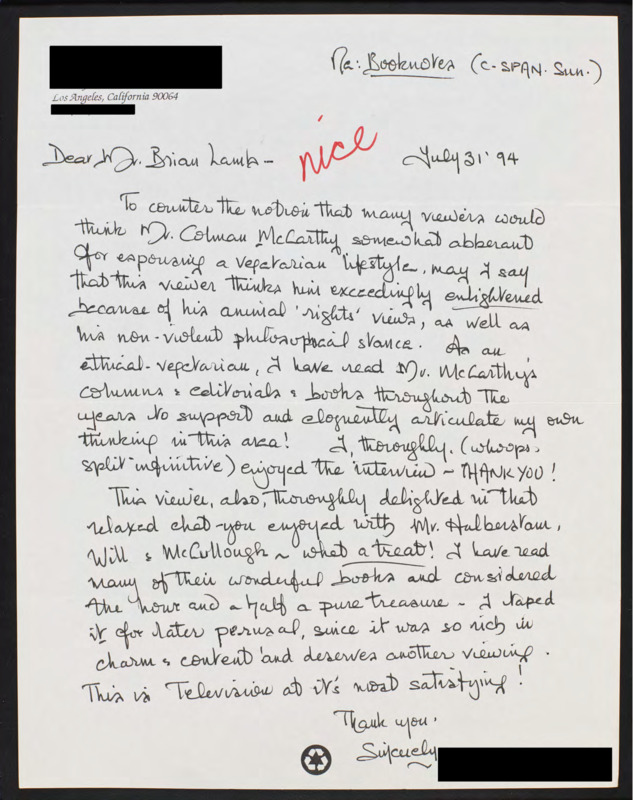 Re: Booknotes (C-SPAN. Sun.)
Los Angeles, California 90064
Dear Mr. Brian Lamb –
nice
July 31 '94
To counter the notion that many viewers would
think Mr. Colman McCarthy somewhat abberant
for espousing a vegetarian lifestyle, may I say
that this viewer thinks him exceedingly enlightened
because of his animal 'rights' views, as well as
his non-violent philosophical stance. As an
ethical-vegetarian, I have read Mr. McCarthy's
columns & editorials & books throughout the
years to support and eloquently articulate my own
thinking in this area! I, thoroughly, (whoops,
split infinitive) enjoyed the interview ~ THANK YOU!
This viewer, also, thoroughly delighted in that
relaxed chat you enjoyed with Mr. Halberstam,
Will & McCullough ~ what a treat! I have read
many of their wonderful books and considered
the hour and a half a pure treasure ~ I taped
it for later perusal, since it was so rich in
charm & content and deserves another viewing.
This is Television at it's most satisfying!
Thank you.
Sincerely